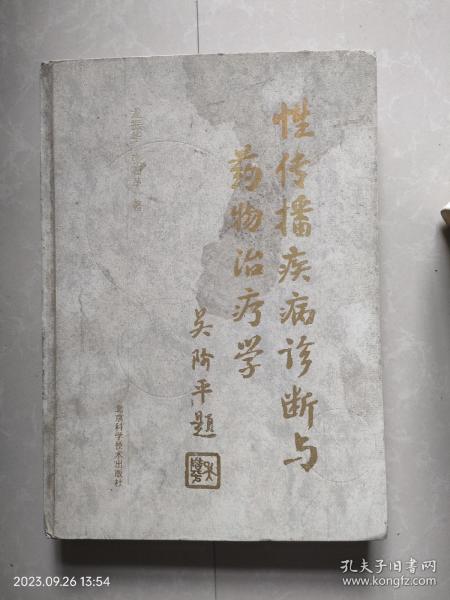 性传播疾病诊断与
药物治疗学
吴阶平题
著
北京科学技术出版社
2023.09.26 13:54
孔夫子旧书网
www.kongfz.com